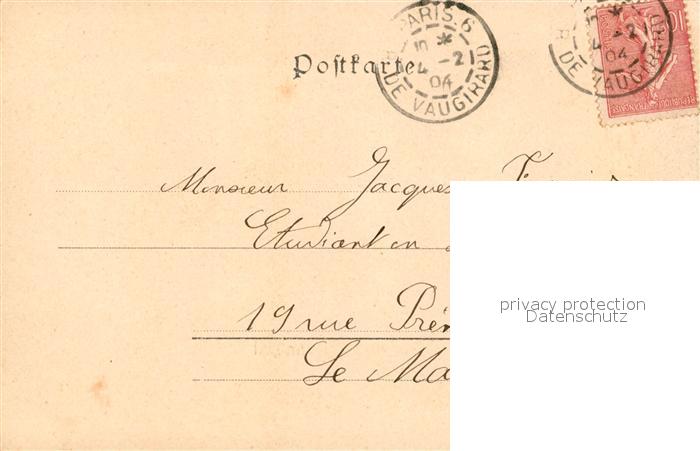 Postkarte
PARIS 6
4 -2
04
DE VAUGIRARD
4 -2
04
DE VAUGIRARD
10
REPUBLIQUE FRANÇAISE
Monsieur Jacques
Etudiant en
19 rue
Le
privacy protection
Datenschutz